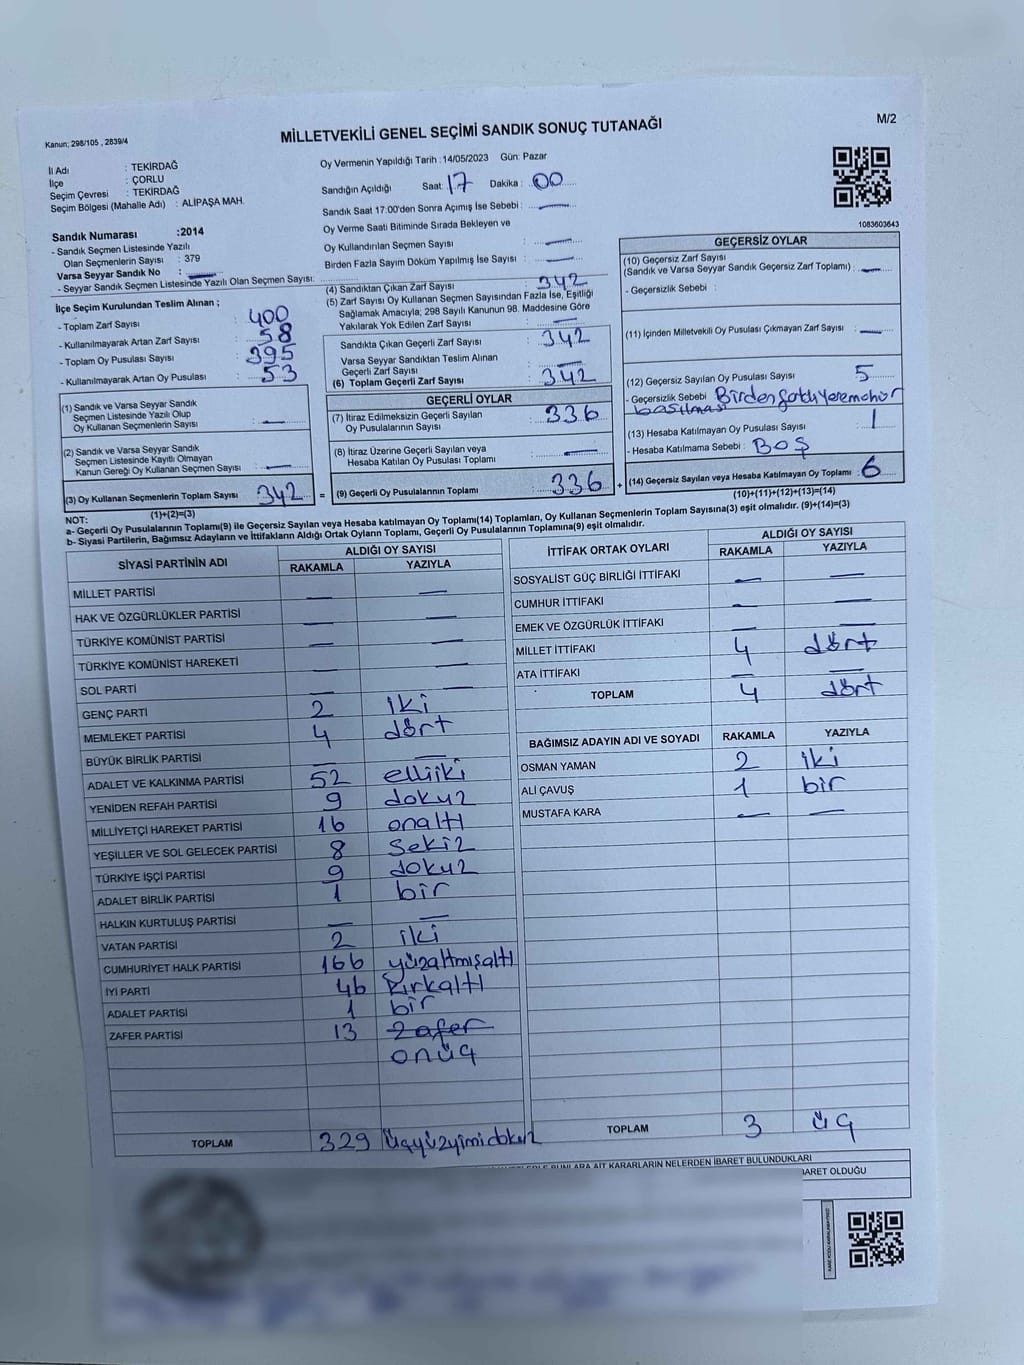 Kanun; 298/105 , 2839/4
MİLLETVEKİLİ GENEL SEÇİMİ SANDIK SONUÇ TUTANAĞI
M/2
İl Adı : TEKİRDAĞ
İlçe : ÇORLU
Seçim Çevresi : TEKİRDAĞ
Seçim Bölgesi (Mahalle Adı) : ALİPAŞA MAH.
Sandık Numarası :2014
- Sandık Seçmen Listesinde Yazılı
Olan Seçmenlerin Sayısı : 379
Varsa Seyyar Sandık No : —
- Seyyar Sandık Seçmen Listesinde Yazılı Olan Seçmen Sayısı:
İlçe Seçim Kurulundan Teslim Alınan ;
- Toplam Zarf Sayısı : 400
- Kullanılmayarak Artan Zarf Sayısı : 58
- Toplam Oy Pusulası Sayısı : 395
- Kullanılmayarak Artan Oy Pusulası : 53
(1) Sandık ve Varsa Seyyar Sandık
Seçmen Listesinde Yazılı Olup
Oy Kullanan Seçmenlerin Sayısı : —
(2) Sandık ve Varsa Seyyar Sandık
Seçmen Listesinde Kayıtlı Olmayan
Kanun Gereği Oy Kullanan Seçmen Sayısı : —
(3) Oy Kullanan Seçmenlerin Toplam Sayısı 342 =
(1)+(2)=(3)
Oy Vermenin Yapıldığı Tarih : 14/05/2023 Gün: Pazar
Sandığın Açıldığı Saat: 17 Dakika : 00
Sandık Saat 17:00'den Sonra Açımış İse Sebebi : —
Oy Verme Saati Bitiminde Sırada Bekleyen ve
Oy Kullandırılan Seçmen Sayısı : —
Birden Fazla Sayım Döküm Yapılmış İse Sayısı : —
(4) Sandıktan Çıkan Zarf Sayısı : 342
(5) Zarf Sayısı Oy Kullanan Seçmen Sayısından Fazla İse, Eşitliği
Sağlamak Amacıyla; 298 Sayılı Kanunun 98. Maddesine Göre
Yakılarak Yok Edilen Zarf Sayısı : —
Sandıkta Çıkan Geçerli Zarf Sayısı : 342
Varsa Seyyar Sandıktan Teslim Alınan
Geçerli Zarf Sayısı : —
(6) Toplam Geçerli Zarf Sayısı : 342
GEÇERLİ OYLAR
(7) İtiraz Edilmeksizin Geçerli Sayılan
Oy Pusulalarının Sayısı : 336
(8) İtiraz Üzerine Geçerli Sayılan veya
Hesaba Katılan Oy Pusulası Toplamı : —
(9) Geçerli Oy Pusulalarının Toplamı : 336 +
1083603643
GEÇERSİZ OYLAR
(10) Geçersiz Zarf Sayısı
(Sandık ve Varsa Seyyar Sandık Geçersiz Zarf Toplamı) : —
- Geçersizlik Sebebi :
(11) İçinden Milletvekili Oy Pusulası Çıkmayan Zarf Sayısı : —
(12) Geçersiz Sayılan Oy Pusulası Sayısı : 5
- Geçersizlik Sebebi : Birden fazla yere mühür
basılması
(13) Hesaba Katılmayan Oy Pusulası Sayısı : 1
- Hesaba Katılmama Sebebi : BOŞ
(14) Geçersiz Sayılan veya Hesaba Katılmayan Oy Toplamı : 6
(10)+(11)+(12)+(13)=(14)
NOT:
a- Geçerli Oy Pusulalarının Toplamı(9) ile Geçersiz Sayılan veya Hesaba katılmayan Oy Toplamı(14) Toplamları, Oy Kullanan Seçmenlerin Toplam Sayısına(3) eşit olmalıdır. (9)+(14)=(3)
b- Siyasi Partilerin, Bağımsız Adayların ve İttifakların Aldığı Ortak Oyların Toplamı, Geçerli Oy Pusulalarının Toplamına(9) eşit olmalıdır.
SİYASİ PARTİNİN ADI ALDIĞI OY SAYISI
RAKAMLA YAZIYLA
MİLLET PARTİSİ — —
HAK VE ÖZGÜRLÜKLER PARTİSİ — —
TÜRKİYE KOMÜNİST PARTİSİ — —
TÜRKİYE KOMÜNİST HAREKETİ — —
SOL PARTİ — —
GENÇ PARTİ 2 iki
MEMLEKET PARTİSİ 4 dört
BÜYÜK BİRLİK PARTİSİ — —
ADALET VE KALKINMA PARTİSİ 52 elliiki
YENİDEN REFAH PARTİSİ 9 dokuz
MİLLİYETÇİ HAREKET PARTİSİ 16 onaltı
YEŞİLLER VE SOL GELECEK PARTİSİ 8 sekiz
TÜRKİYE İŞÇİ PARTİSİ 9 dokuz
ADALET BİRLİK PARTİSİ 1 bir
HALKIN KURTULUŞ PARTİSİ — —
VATAN PARTİSİ 2 iki
CUMHURİYET HALK PARTİSİ 166 yüzaltmışaltı
İYİ PARTİ 46 kırkaltı
ADALET PARTİSİ 1 bir
ZAFER PARTİSİ 13 zafer
onüç
TOPLAM 329 üçyüzyimidokuz
İTTİFAK ORTAK OYLARI ALDIĞI OY SAYISI
RAKAMLA YAZIYLA
SOSYALİST GÜÇ BİRLİĞİ İTTİFAKI — —
CUMHUR İTTİFAKI — —
EMEK VE ÖZGÜRLÜK İTTİFAKI — —
MİLLET İTTİFAKI 4 dört
ATA İTTİFAKI — —
TOPLAM 4 dört
BAĞIMSIZ ADAYIN ADI VE SOYADI RAKAMLA YAZIYLA
OSMAN YAMAN 2 iki
ALİ ÇAVUŞ 1 bir
MUSTAFA KARA — —
TOPLAM 3 üç
BUNLARA AİT KARARLARIN NELERDEN İBARET BULUNDUKLARI
İBARET OLDUĞU